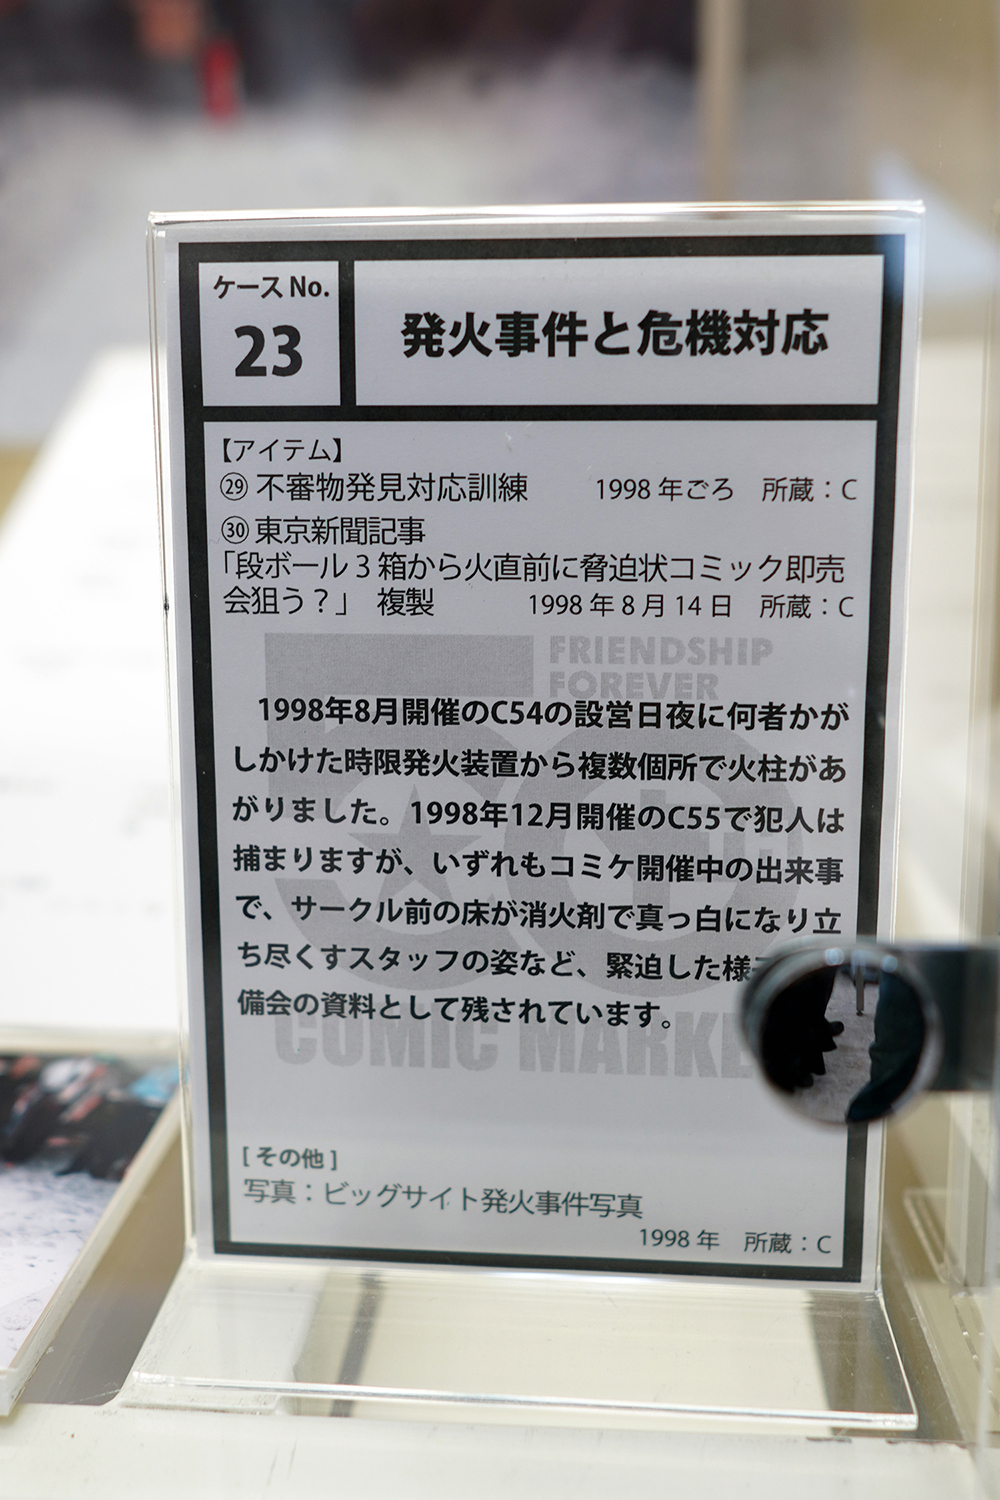 ケース No.
23
発火事件と危機対応
【アイテム】
㉙ 不審物発見対応訓練 1998 年ごろ 所蔵：C
㉚ 東京新聞記事
「段ボール 3 箱から火直前に脅迫状コミック即売
会狙う？」 複製 1998 年 8 月 14 日 所蔵：C
FRIENDSHIP
FOREVER
1998年8月開催のC54の設営日夜に何者かが
しかけた時限発火装置から複数個所で火柱があ
がりました。1998年12月開催のC55で犯人は
捕まりますが、いずれもコミケ開催中の出来事
で、サークル前の床が消火剤で真っ白になり立
ち尽くすスタッフの姿など、緊迫した様
備会の資料として残されています。
COMIC MARKE
[ その他 ]
写真：ビッグサイト発火事件写真
1998 年 所蔵：C